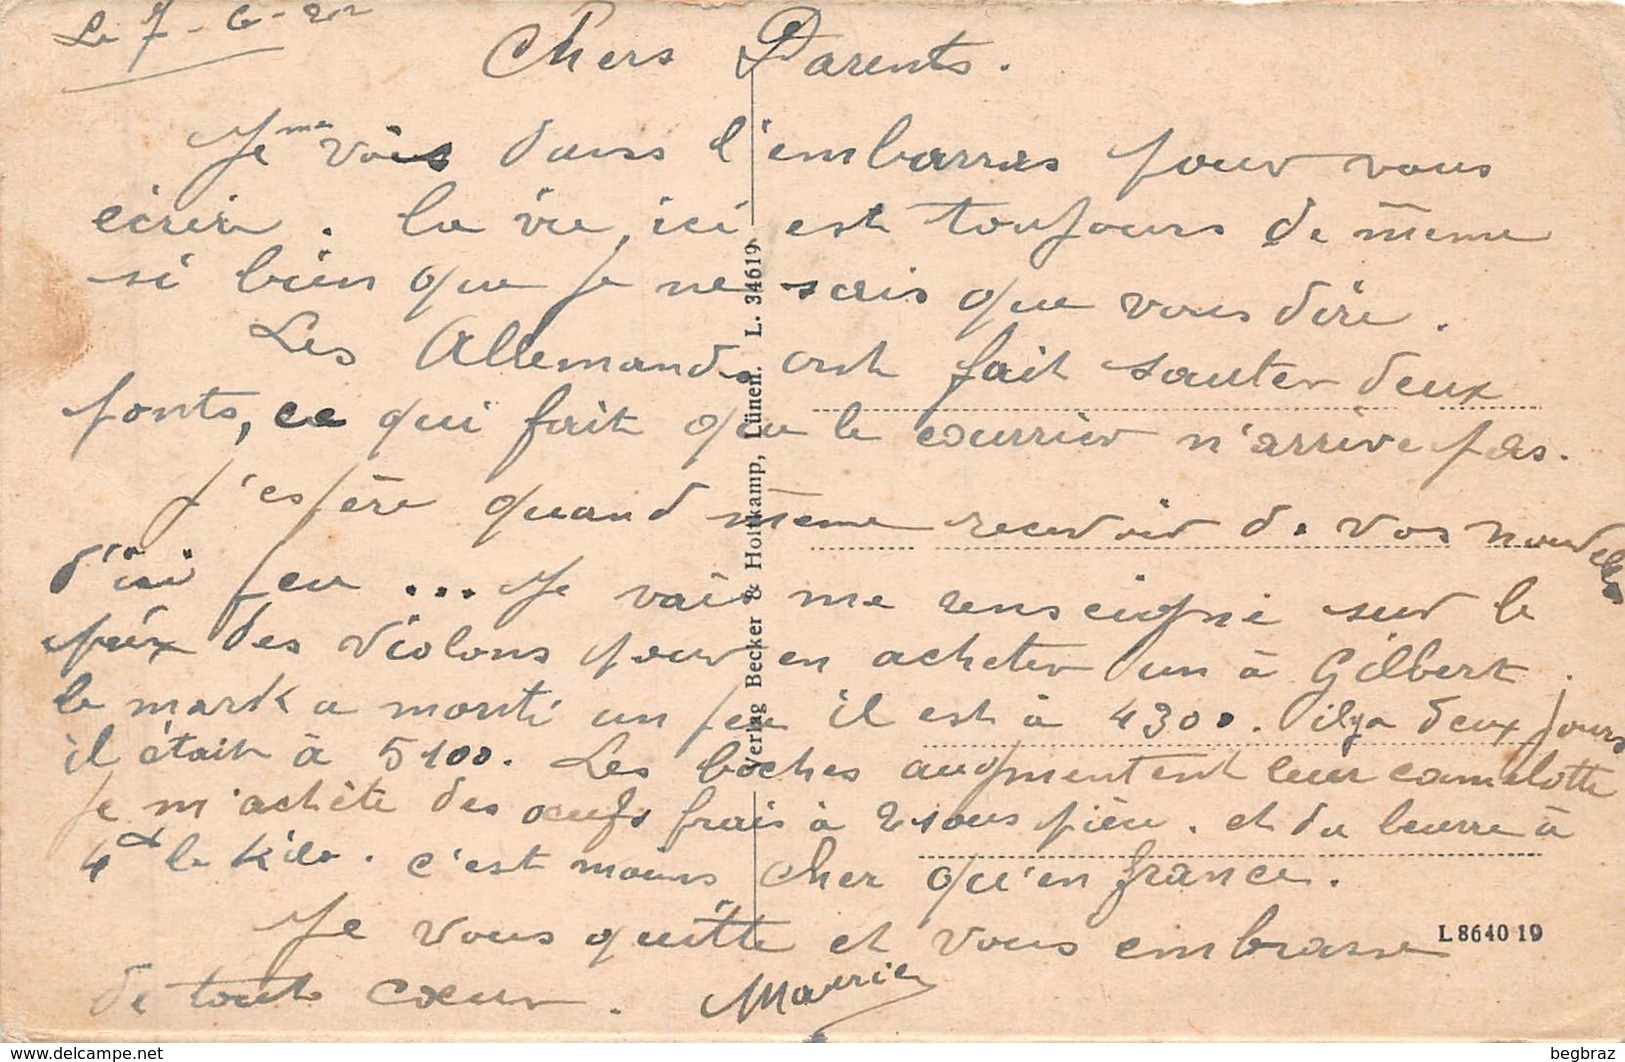 Le 7 - 6 - 
Chers Parents.
Je me vois dans l'embarras pour vous
écrire. la vie, ici est toujours de même
si bien que je ne sais que vous dire.
Les Allemands ont fait sauter deux
ponts, ce qui fait que le courrier n'arrive pas.
J'espère quand même recevoir de vos nouvelles
d'ici peu ... Je vais me renseigné sur le
prix des violons pour en acheter un à Gilbert.
le mark a monté un peu il est à 4300. il y a deux jours
il était à 5100. Les boches augmentent leur camelotte
je m'achète des œufs frais à 2 sous pièce. et du beurre à
4 le kilo. c'est moins cher qu'en france.
Je vous quitte et vous embrasse
de tout cœur. Maurice
Verlag Becker & Holtkamp, Lünen. L. 34619
L 8640 19
http://www.delcampe.net
begbraz